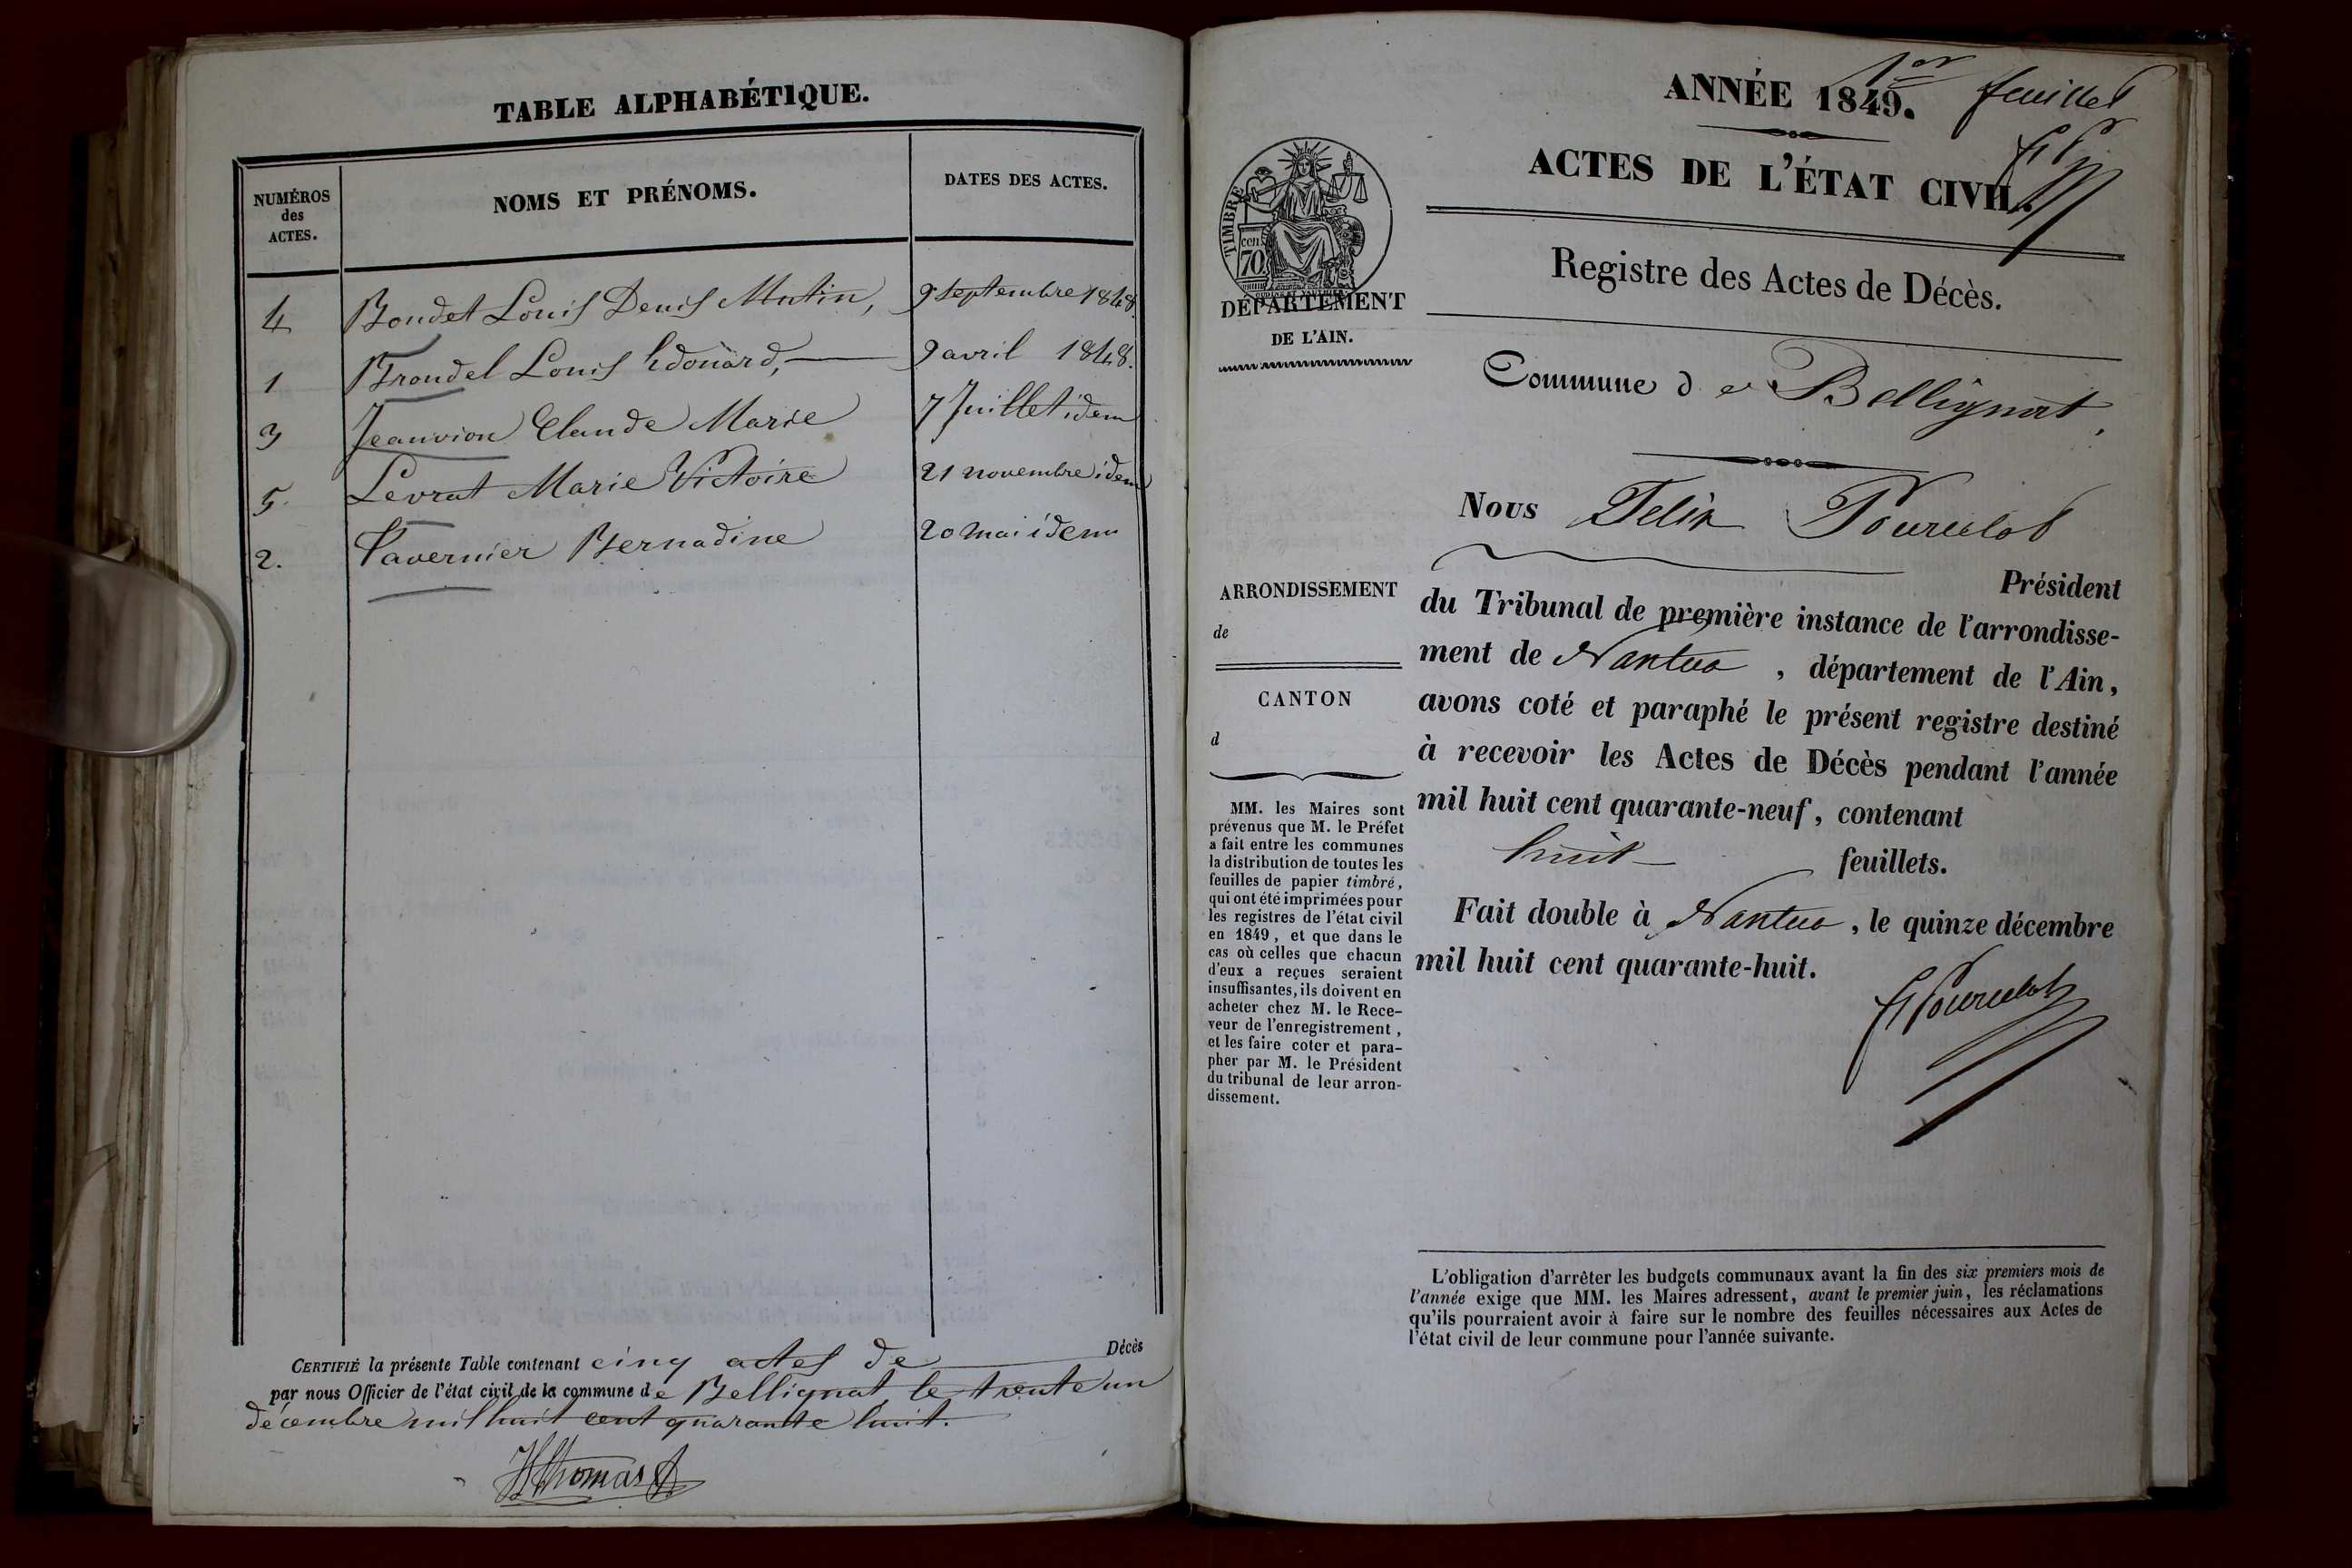 TABLE ALPHABÉTIQUE.
NUMÉROS
des
ACTES.
NOMS ET PRÉNOMS.
DATES DES ACTES.
4 Bondet Louis Denis Mutin, 9 septembre 1848.
1 Brondel Louis Edouard, 9 avril 1848.
3 Jeanvion Claude Marie 7 Juillet idem
5. Levrat Marie Victoire 21 novembre idem
2. Tavernier Bernadine 20 mai idem
CERTIFIÉ la présente Table contenant cinq actes de Décès
par nous Officier de l'état civil de la commune de Bellignat, le trente un
décembre mil huit cent quarante huit.
Thomas
1er feuillet
ANNÉE 1849.
ACTES DE L'ÉTAT CIVIL.
TIMBRE
70 cen
DÉPARTEMENT
DE L'AIN.
Registre des Actes de Décès.
Commune de Bellignat,
Nous Felix Pourcelot
Président
du Tribunal de première instance de l'arrondisse-
ment de Nantua, département de l'Ain,
avons coté et paraphé le présent registre destiné
à recevoir les Actes de Décès pendant l'année
mil huit cent quarante-neuf, contenant
huit feuillets.
Fait double à Nantua, le quinze décembre
mil huit cent quarante-huit.
F Pourcelot
ARRONDISSEMENT
de
CANTON
d
MM. les Maires sont
prévenus que M. le Préfet
a fait entre les communes
la distribution de toutes les
feuilles de papier timbré,
qui ont été imprimées pour
les registres de l'état civil
en 1849, et que dans le
cas où celles que chacun
d'eux a reçues seraient
insuffisantes, ils doivent en
acheter chez M. le Rece-
veur de l'enregistrement,
et les faire coter et para-
pher par M. le Président
du tribunal de leur arron-
dissement.
L'obligation d'arrêter les budgets communaux avant la fin des six premiers mois de
l'année exige que MM. les Maires adressent, avant le premier juin, les réclamations
qu'ils pourraient avoir à faire sur le nombre des feuilles nécessaires aux Actes de
l'état civil de leur commune pour l'année suivante.